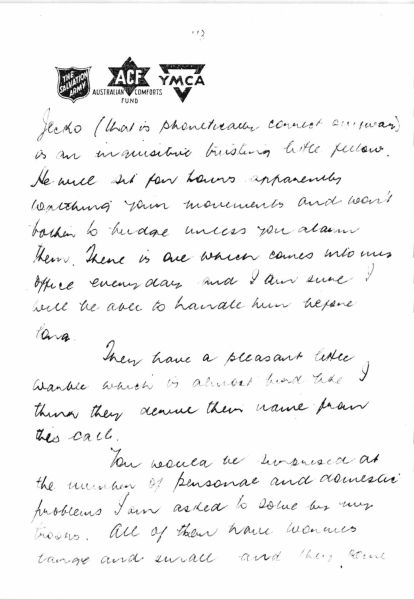 "3
THE SALVATION ARMY
ACF
AUSTRALIAN COMFORTS FUND
YMCA
Jecko (that is phonetically correct anyway)
is an inquisitive trusting little fellow.
He will sit for hours apparently
watching your movements and won't
bother to budge unless you alarm
them. There is one which comes into my
office everyday and I am sure I
will be able to handle him before
long.
They have a pleasant little
warble which is almost bird like I
think they derive their name from
this call.
You would be surprised at
the number of personal and domestic
problems I am asked to solve by my
troops. All of them have worries
large and small and they come